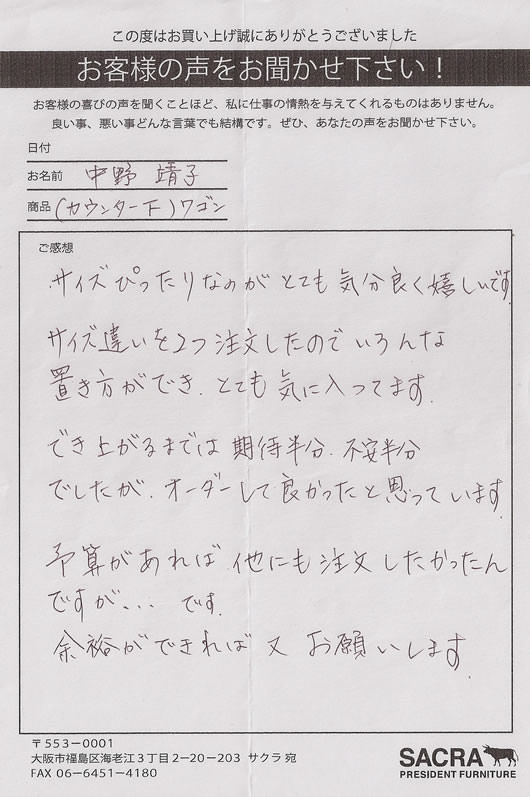 この度はお買い上げ誠にありがとうございました
お客様の声をお聞かせ下さい！
お客様の喜びの声を聞くことほど、私に仕事の情熱を与えてくれるものはありません。
良い事、悪い事どんな言葉でも結構です。ぜひ、あなたの声をお聞かせ下さい。
日付
お名前 中野 靖子
商品 (カウンター下)ワゴン
ご感想
サイズぴったりなのが とても 気分良く嬉しいです.
サイズ違いを2つ注文したので いろんな
置き方ができ. とても 気に入ってます.
でき上がるまでは 期待半分. 不安半分
でしたが. オーダーして 良かったと思っています.
予算があれば 他にも 注文したかったん
ですが... です.
余裕ができれば 又 お願いします.
〒553-0001
大阪市福島区海老江3丁目2-20-203 サクラ 宛
FAX 06-6451-4180
SACRA
PRESIDENT FURNITURE